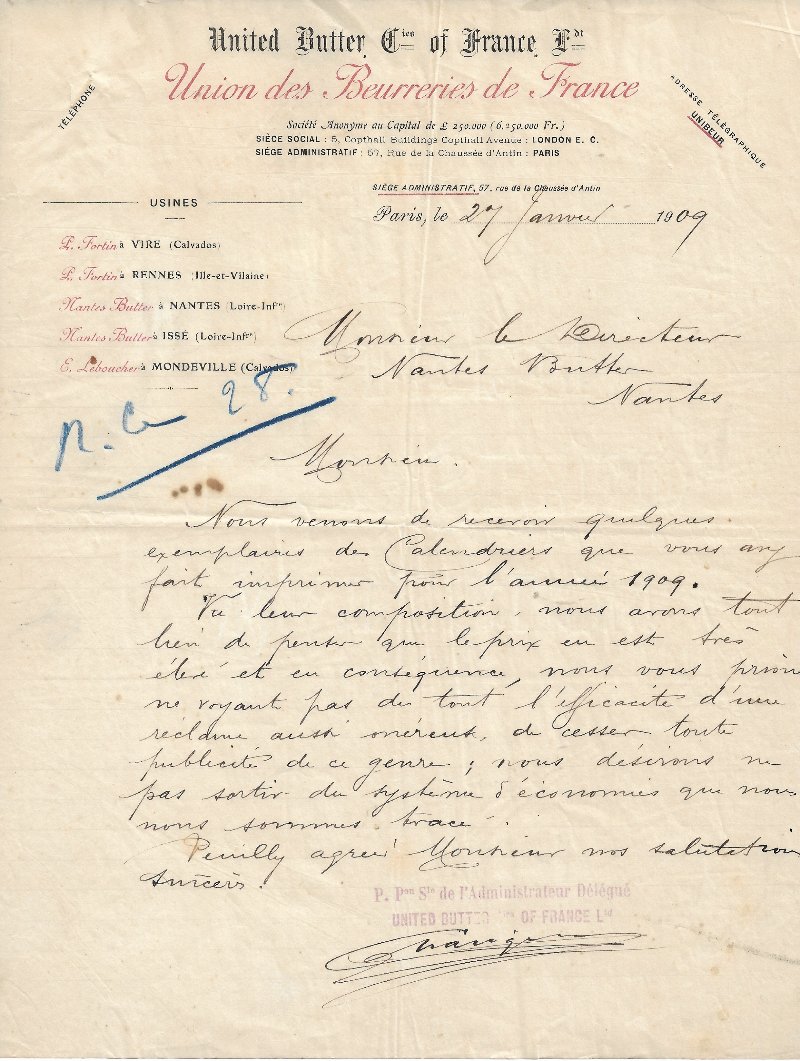 United Butter Cies of France Ldt
Union des Beurreries de France
TÉLÉPHONE
ADRESSE TÉLÉGRAPHIQUE
UNIBEUR
Société Anonyme au Capital de £ 250.000 (6.250.000 Fr.)
SIÈGE SOCIAL : 5, Copthall Buildings Copthall Avenue : LONDON E. C.
SIÉGE ADMINISTRATIF : 57, Rue de la Chaussée d'Antin : PARIS
SIÉGE ADMINISTRATIF, 57, rue de la Chaussée d'Antin
Paris, le 27 Janvier 1909
USINES
P. Fortin à VIRE (Calvados)
P. Fortin à RENNES (Ille-et-Vilaine)
Nantes Butter à NANTES (Loire-Infre)
Nantes Butter à ISSÉ (Loire-Infre)
E. Leboucher à MONDEVILLE (Calvados)
28.
Monsieur le Directeur
Nantes Butter
Nantes
Monsieur.
Nous venons de recevoir quelques
exemplaires des Calendriers que vous avez
fait imprimer pour l'année 1909.
Vu leur composition, nous avons tout
lieu de penser que le prix en est très
élevé et en conséquence, nous vous prions
ne voyant pas du tout l'efficacité d'une
réclame aussi onéreuse, de cesser toute
publicité de ce genre ; nous désirons ne
pas sortir du système d'économies que nous
nous sommes tracé.
Veuillez agréer Monsieur nos salutations
sincères.
P. Pon Sté de l'Administrateur Délégué
UNITED BUTTER Cies OF FRANCE Ltd